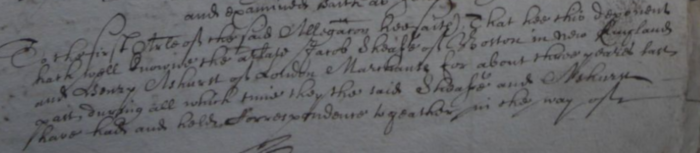 and examined saith as
To the first Arle of the said Allegacon hee saith That hee this deponent
hath well knowne the arlate Jacob Sheafe of Boston in New England
and Henry Ashurst of London Marchants for about three yeares last
past, during all which time they the said Sheafe and Ashurst
have had and held Correspondence togeather in the way of